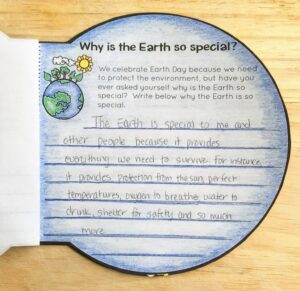 Why is the Earth so special?
We celebrate Earth Day because we need
to protect the environment, but have you
ever asked yourself why is the Earth so
special? Write below why the Earth is so
special.
The Earth is special to me and
other people because it provides
everything we need to survive for instance,
it provides protection from the sun, perfect
temperatures, oxygen to breathe, water to
drink, shelter for safety and so much
more.